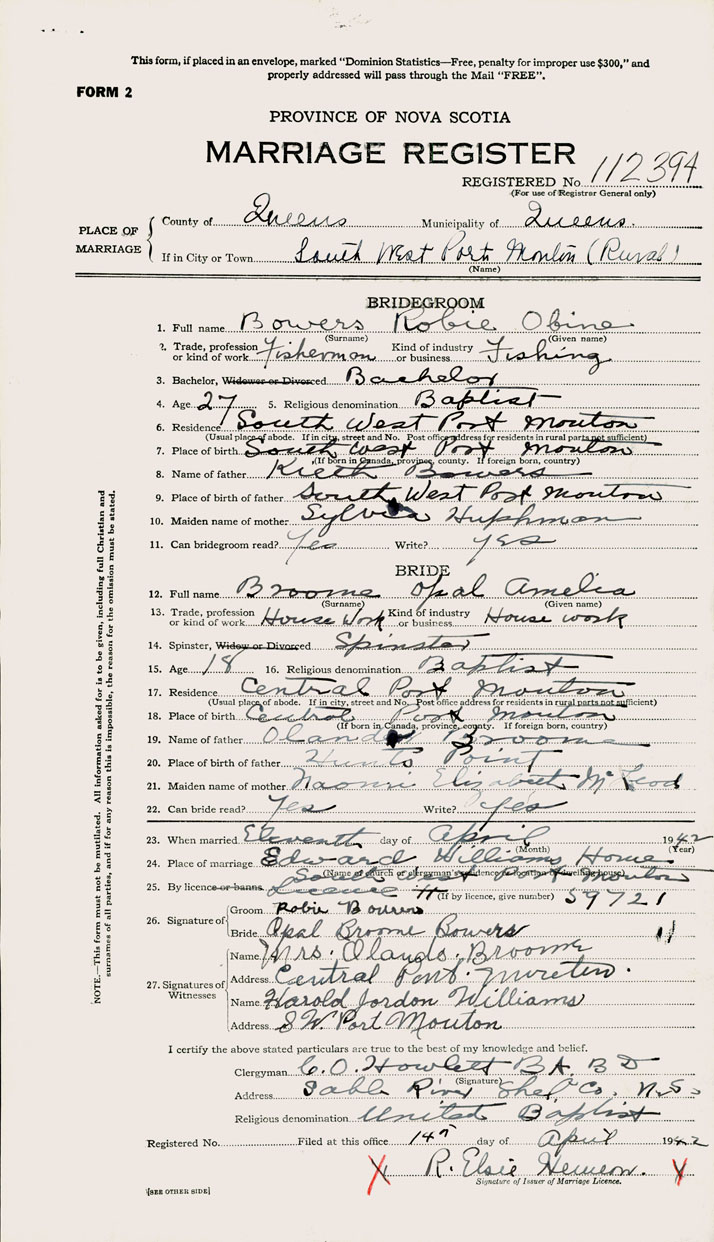 This form, if placed in an envelope, marked "Dominion Statistics—Free, penalty for improper use $300," and
properly addressed will pass through the Mail "FREE".
FORM 2
PROVINCE OF NOVA SCOTIA
MARRIAGE REGISTER
REGISTERED No. 112394
(For use of Registrar General only)
PLACE OF MARRIAGE
County of Queens Municipality of Queens.
If in City or Town South West Port Mouton (Rural)
(Name)
BRIDEGROOM
1. Full name Bowers Robie Obine
(Surname) (Given name)
2. Trade, profession or kind of work Fisherman Kind of industry or business Fishing
3. Bachelor, Widower or Divorced Bachelor
4. Age 27 5. Religious denomination Baptist
6. Residence South West Port Mouton
(Usual place of abode. If in city, street and No. Post office address for residents in rural parts not sufficient)
7. Place of birth South West Port Mouton
(If born in Canada, province, county. If foreign born, country)
8. Name of father Kieth Bowers
9. Place of birth of father South West Port Mouton
10. Maiden name of mother Sylvia Huphman
11. Can bridegroom read? Yes Write? Yes
BRIDE
12. Full name Broome Opal Amelia
(Surname) (Given name)
13. Trade, profession or kind of work House Work Kind of industry or business House work
14. Spinster, Widow or Divorced Spinster
15. Age 18 16. Religious denomination Baptist
17. Residence Central Port Mouton
(Usual place of abode. If in city, street and No. Post office address for residents in rural parts not sufficient)
18. Place of birth Central Port Mouton
(If born in Canada, province, county. If foreign born, country)
19. Name of father Broome
20. Place of birth of father Hunts Point
21. Maiden name of mother Naomi Elizabeth McLeod
22. Can bride read? Yes Write? Yes
23. When married Eleventh day of April 1942
(Month) (Year)
24. Place of marriage Edward Williams Home
South West Port Mouton
(Name of church or clergyman's residence or location by dwelling house)
25. By licence or banns Licence (If by licence, give number) 59721
26. Signature of
Groom Robie Bowers
Bride Opal Broome Bowers
27. Signatures of Witnesses
Name Mrs. Olands. Broome
Address Central Port. Mouton.
Name Harold Jordon Williams
Address S.W. Port Mouton
I certify the above stated particulars are true to the best of my knowledge and belief.
Clergyman C. O. Howlett B.A. B D
(Signature)
Address Sable River Shel. Co. N.S.
Religious denomination United Baptist
Registered No. Filed at this office 14th day of April 1942
R. Elsie Hemeon.
Signature of Issuer of Marriage Licence.
[SEE OTHER SIDE]
NOTE.—This form must not be mutilated. All information asked for is to be given, including full Christian and
surnames of all parties, and if for any reason this is impossible, the reason for the omission must be stated.